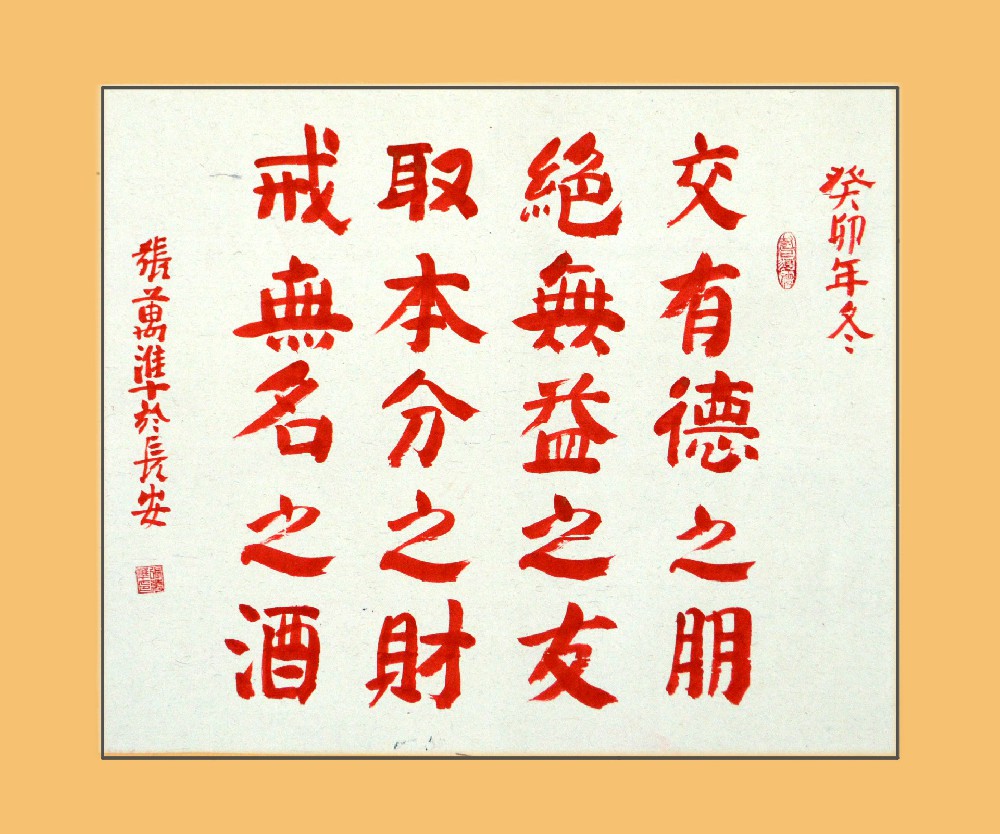 癸卯年冬
交有德之朋
絕無益之友
取本分之財
戒無名之酒
張萬淮十於長安